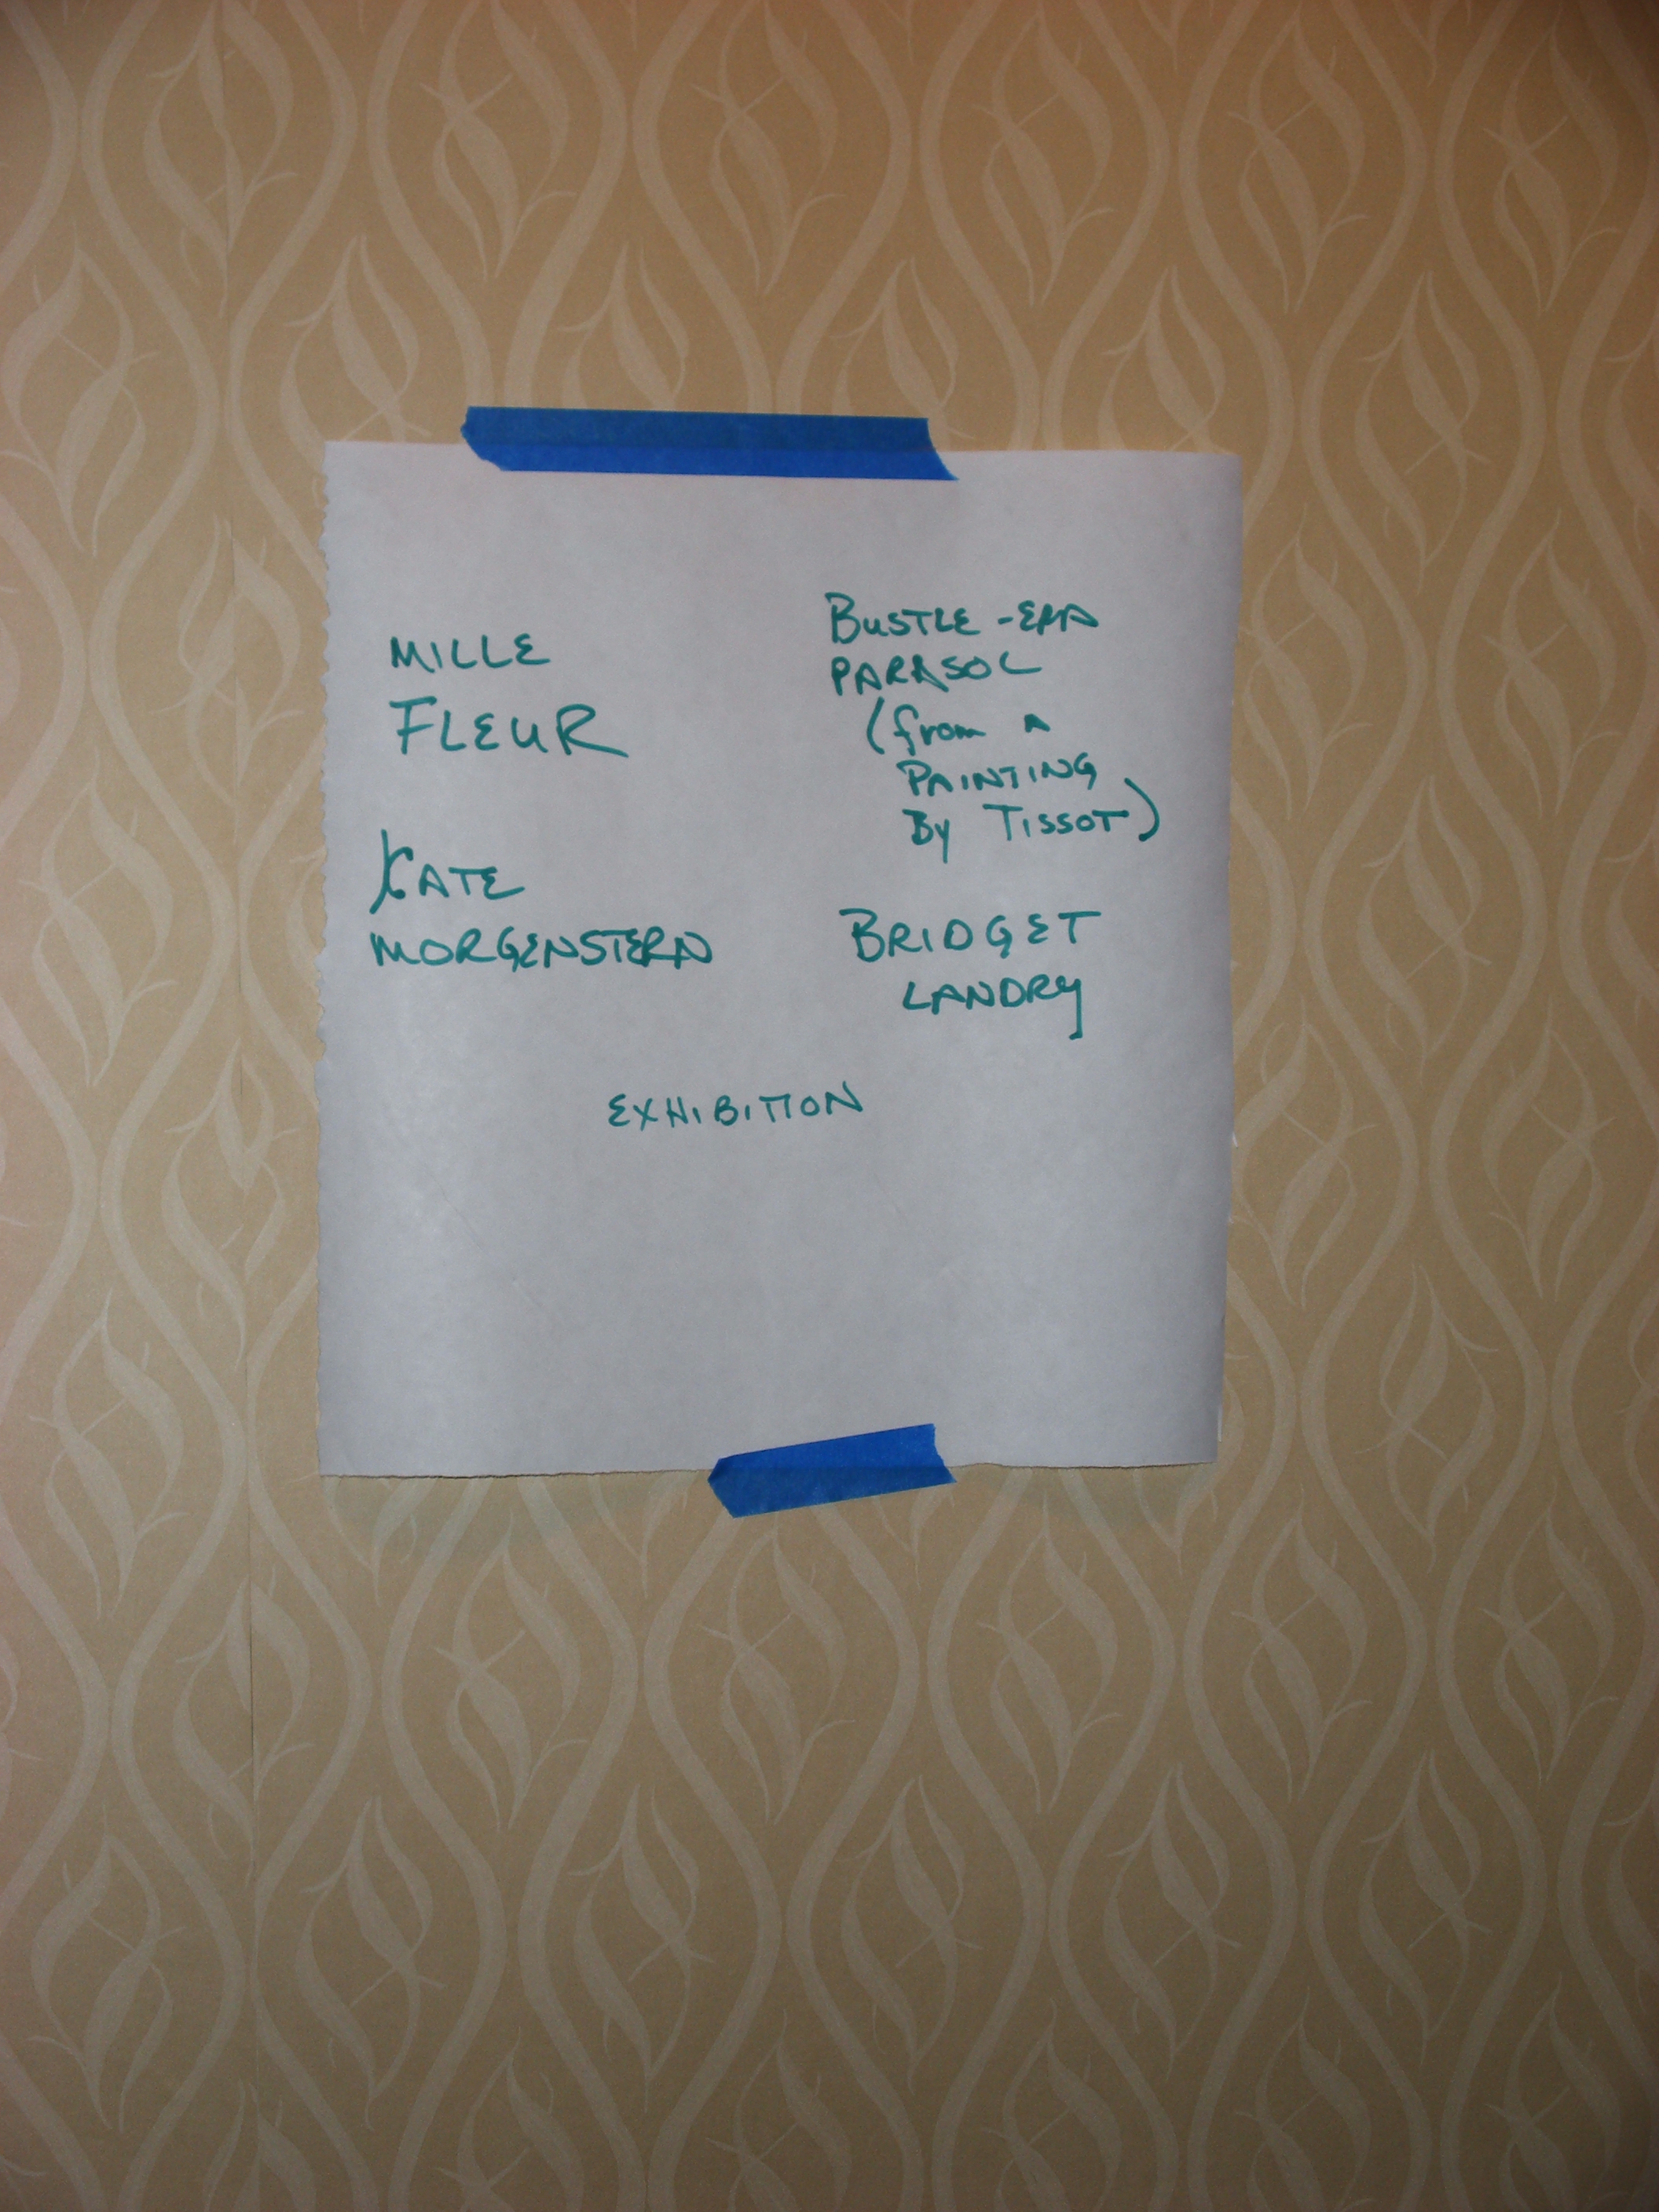 MILLE
FLEUR
KATE
MORGENSTERN
BUSTLE-ERA
PARASOL
(from A
PAINTING
By TISSOT)
BRIDGET
LANDRY
EXHIBITION